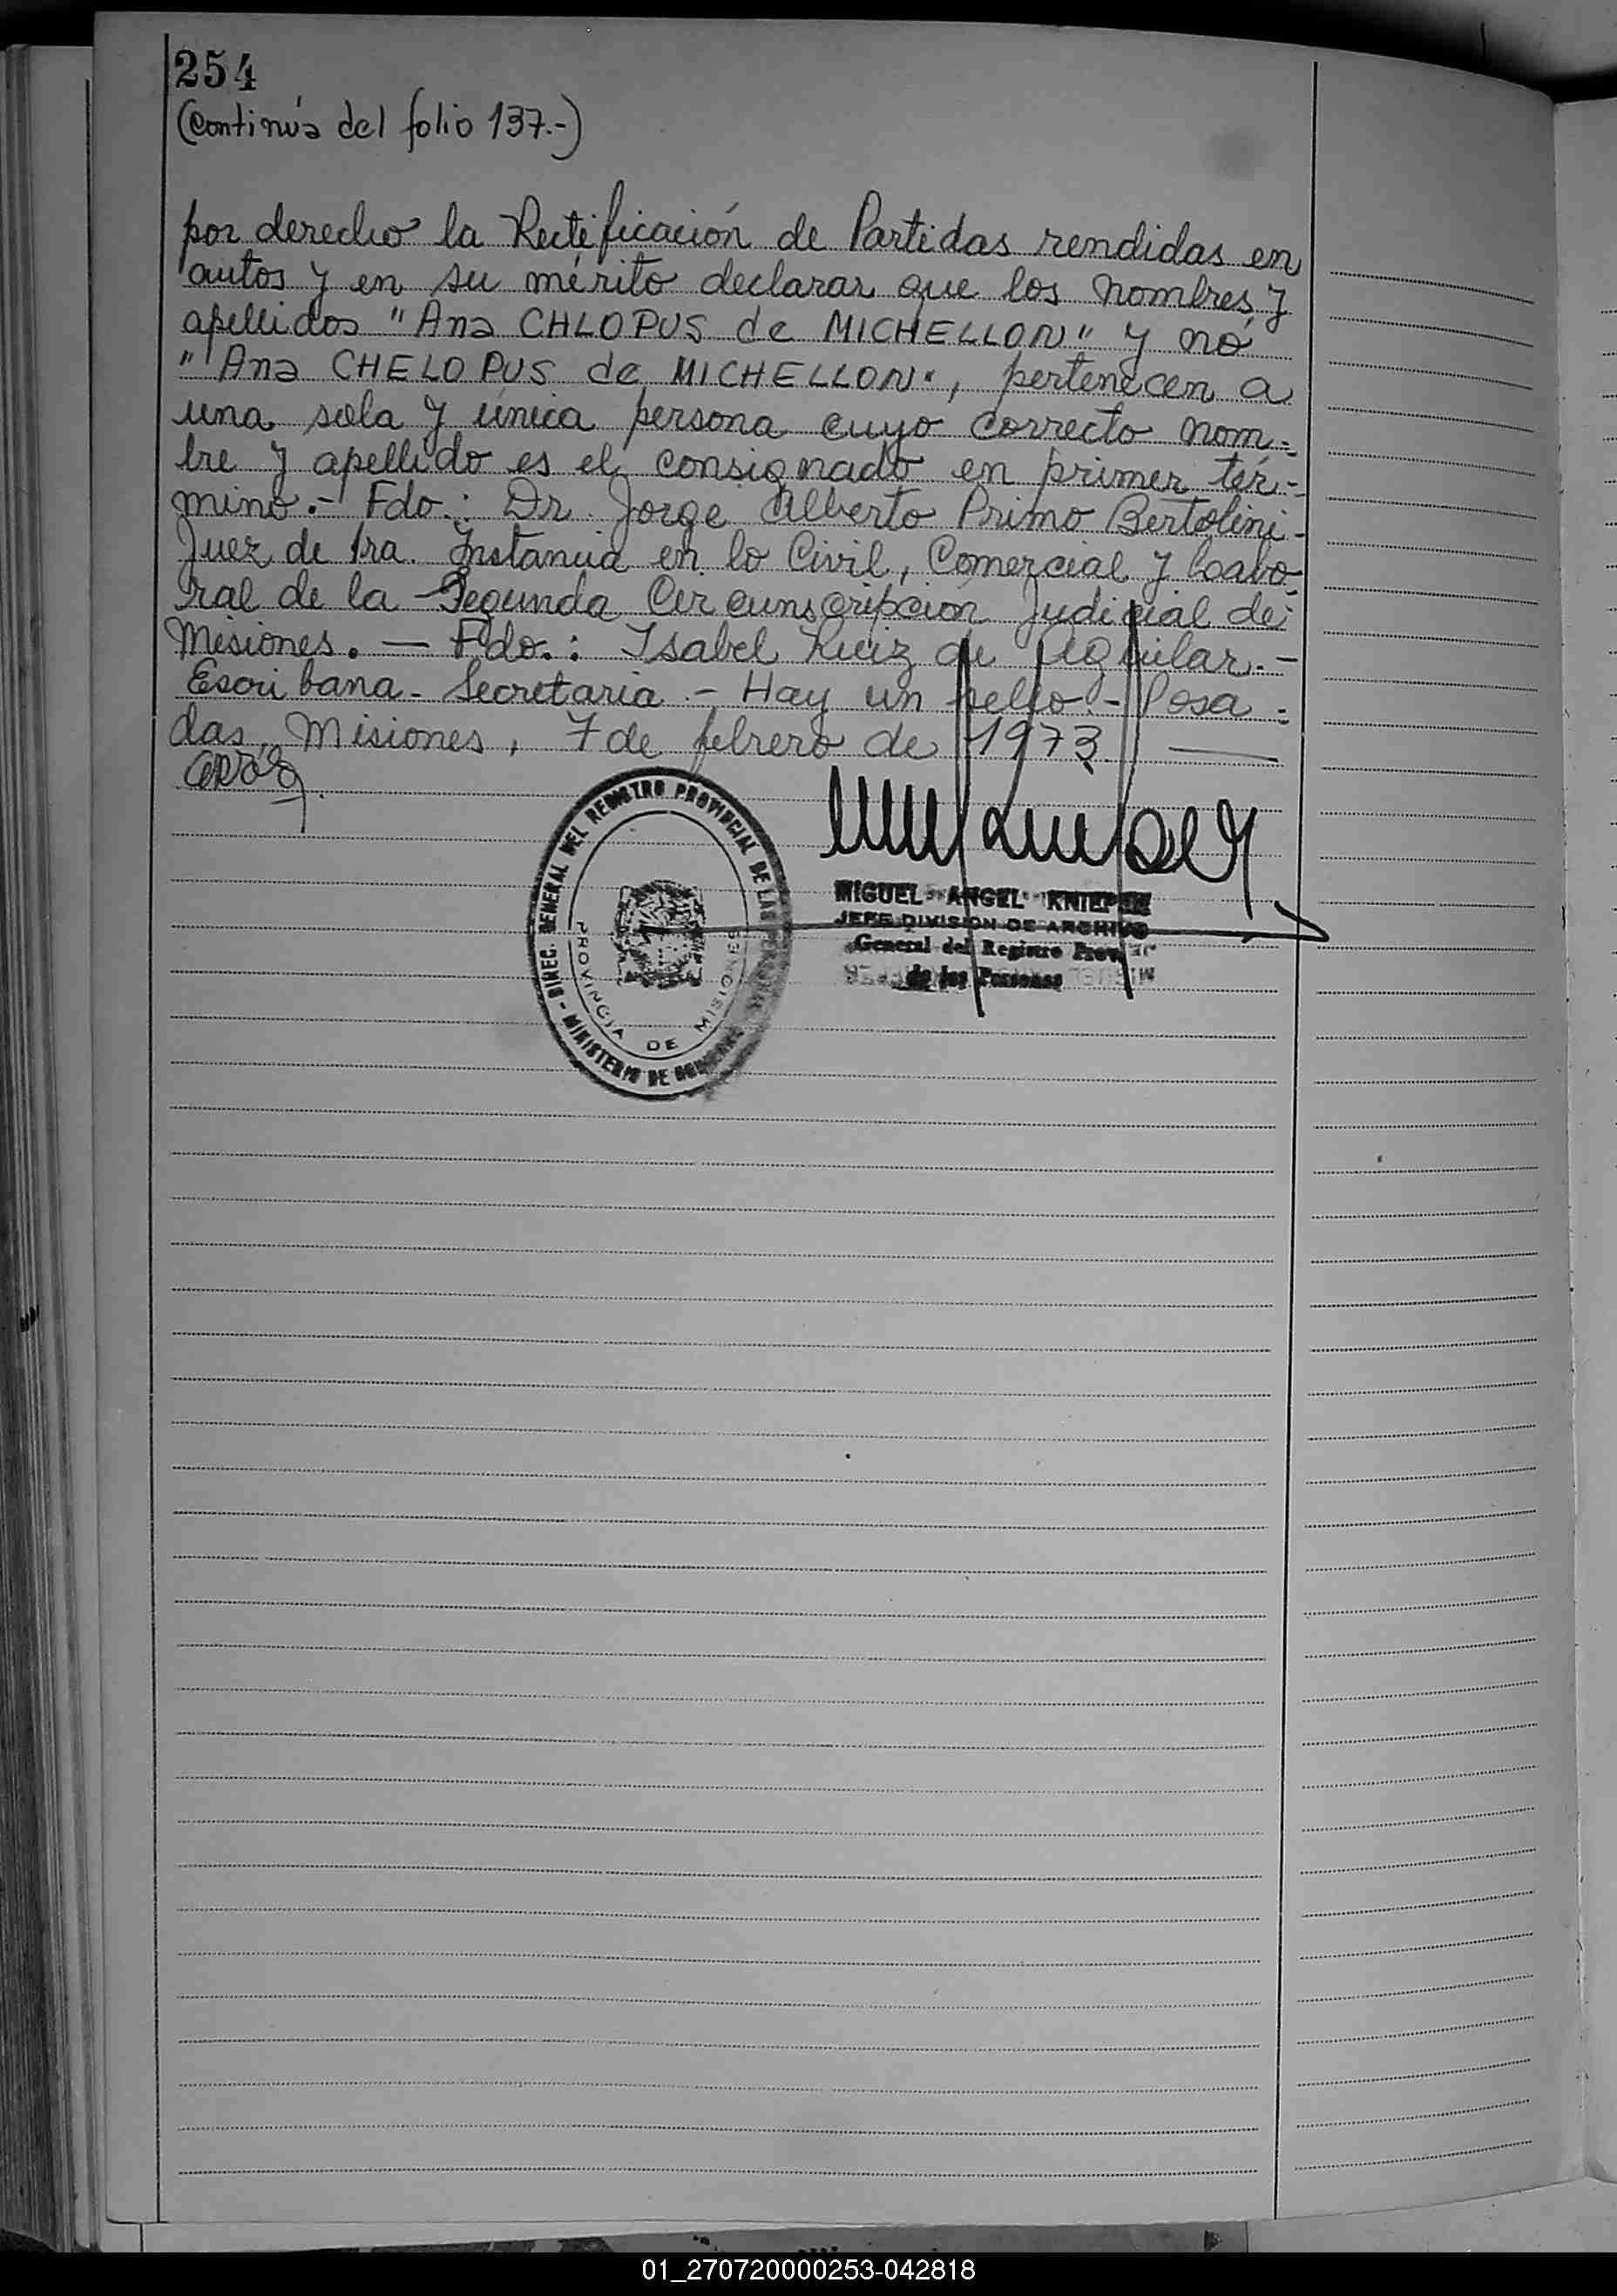 254
(Continúa del folio 137.-)
por derecho la Rectificación de Partidas rendidas en
autos y en su mérito declarar que los nombres y
apellidos "Ana CHLOPUS de MICHELLON" y nó
"Ana CHELOPUS de MICHELLON", pertenecen a
una sola y única persona cuyo correcto nom-
bre y apellido es el consignado en primer tér-
mino.- Fdo.: Dr. Jorge Alberto Primo Bertolini-
Juez de 1ra. Instancia en lo Civil, Comercial y Labo
ral de la Segunda Circunscripción Judicial de
Misiones. — Fdo.: Isabel Ruiz de Aguilar.-
Escribana-Secretaria.- Hay un sello.- Posa-
das, Misiones, 7 de febrero de 1973.
DIREC. GENERAL DEL REGISTRO PROVINCIAL DE LAS
- MINISTERIO DE
PROVINCIA DE MISIONES
MIGUEL ANGEL
JEFE DIVISION DE ARCHIVO
General del Registro
de las Personas
01_270720000253-042818